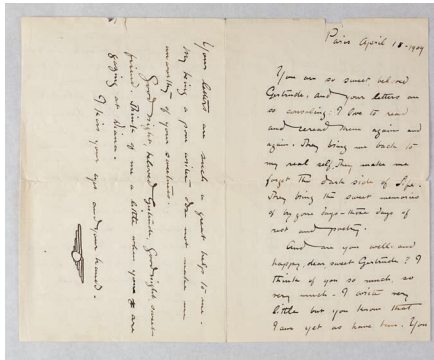 Paris April 18-1904
You are so sweet beloved
Gertrude, and your letters are
so consoling; I love to read
and reread them again and
again. They bring me back to
my real self, they make me
forget the dark side of life.
They bring the sweet memories
of by gone days - those days of
rest and poetry.
And are you well and
happy, dear sweet Gertrude? I
think of you so much, so
very much. I write very
little but you know that
I am yet as have been. You
Your letters are such a great help to me.
My being a poor writer does not make me
unworthy of your sweetness.
Good night, beloved Gertrude, Goodnight, sweet
friend. Think of me a little when you are
gazing at Diana.
I kiss your eyes and your hands.